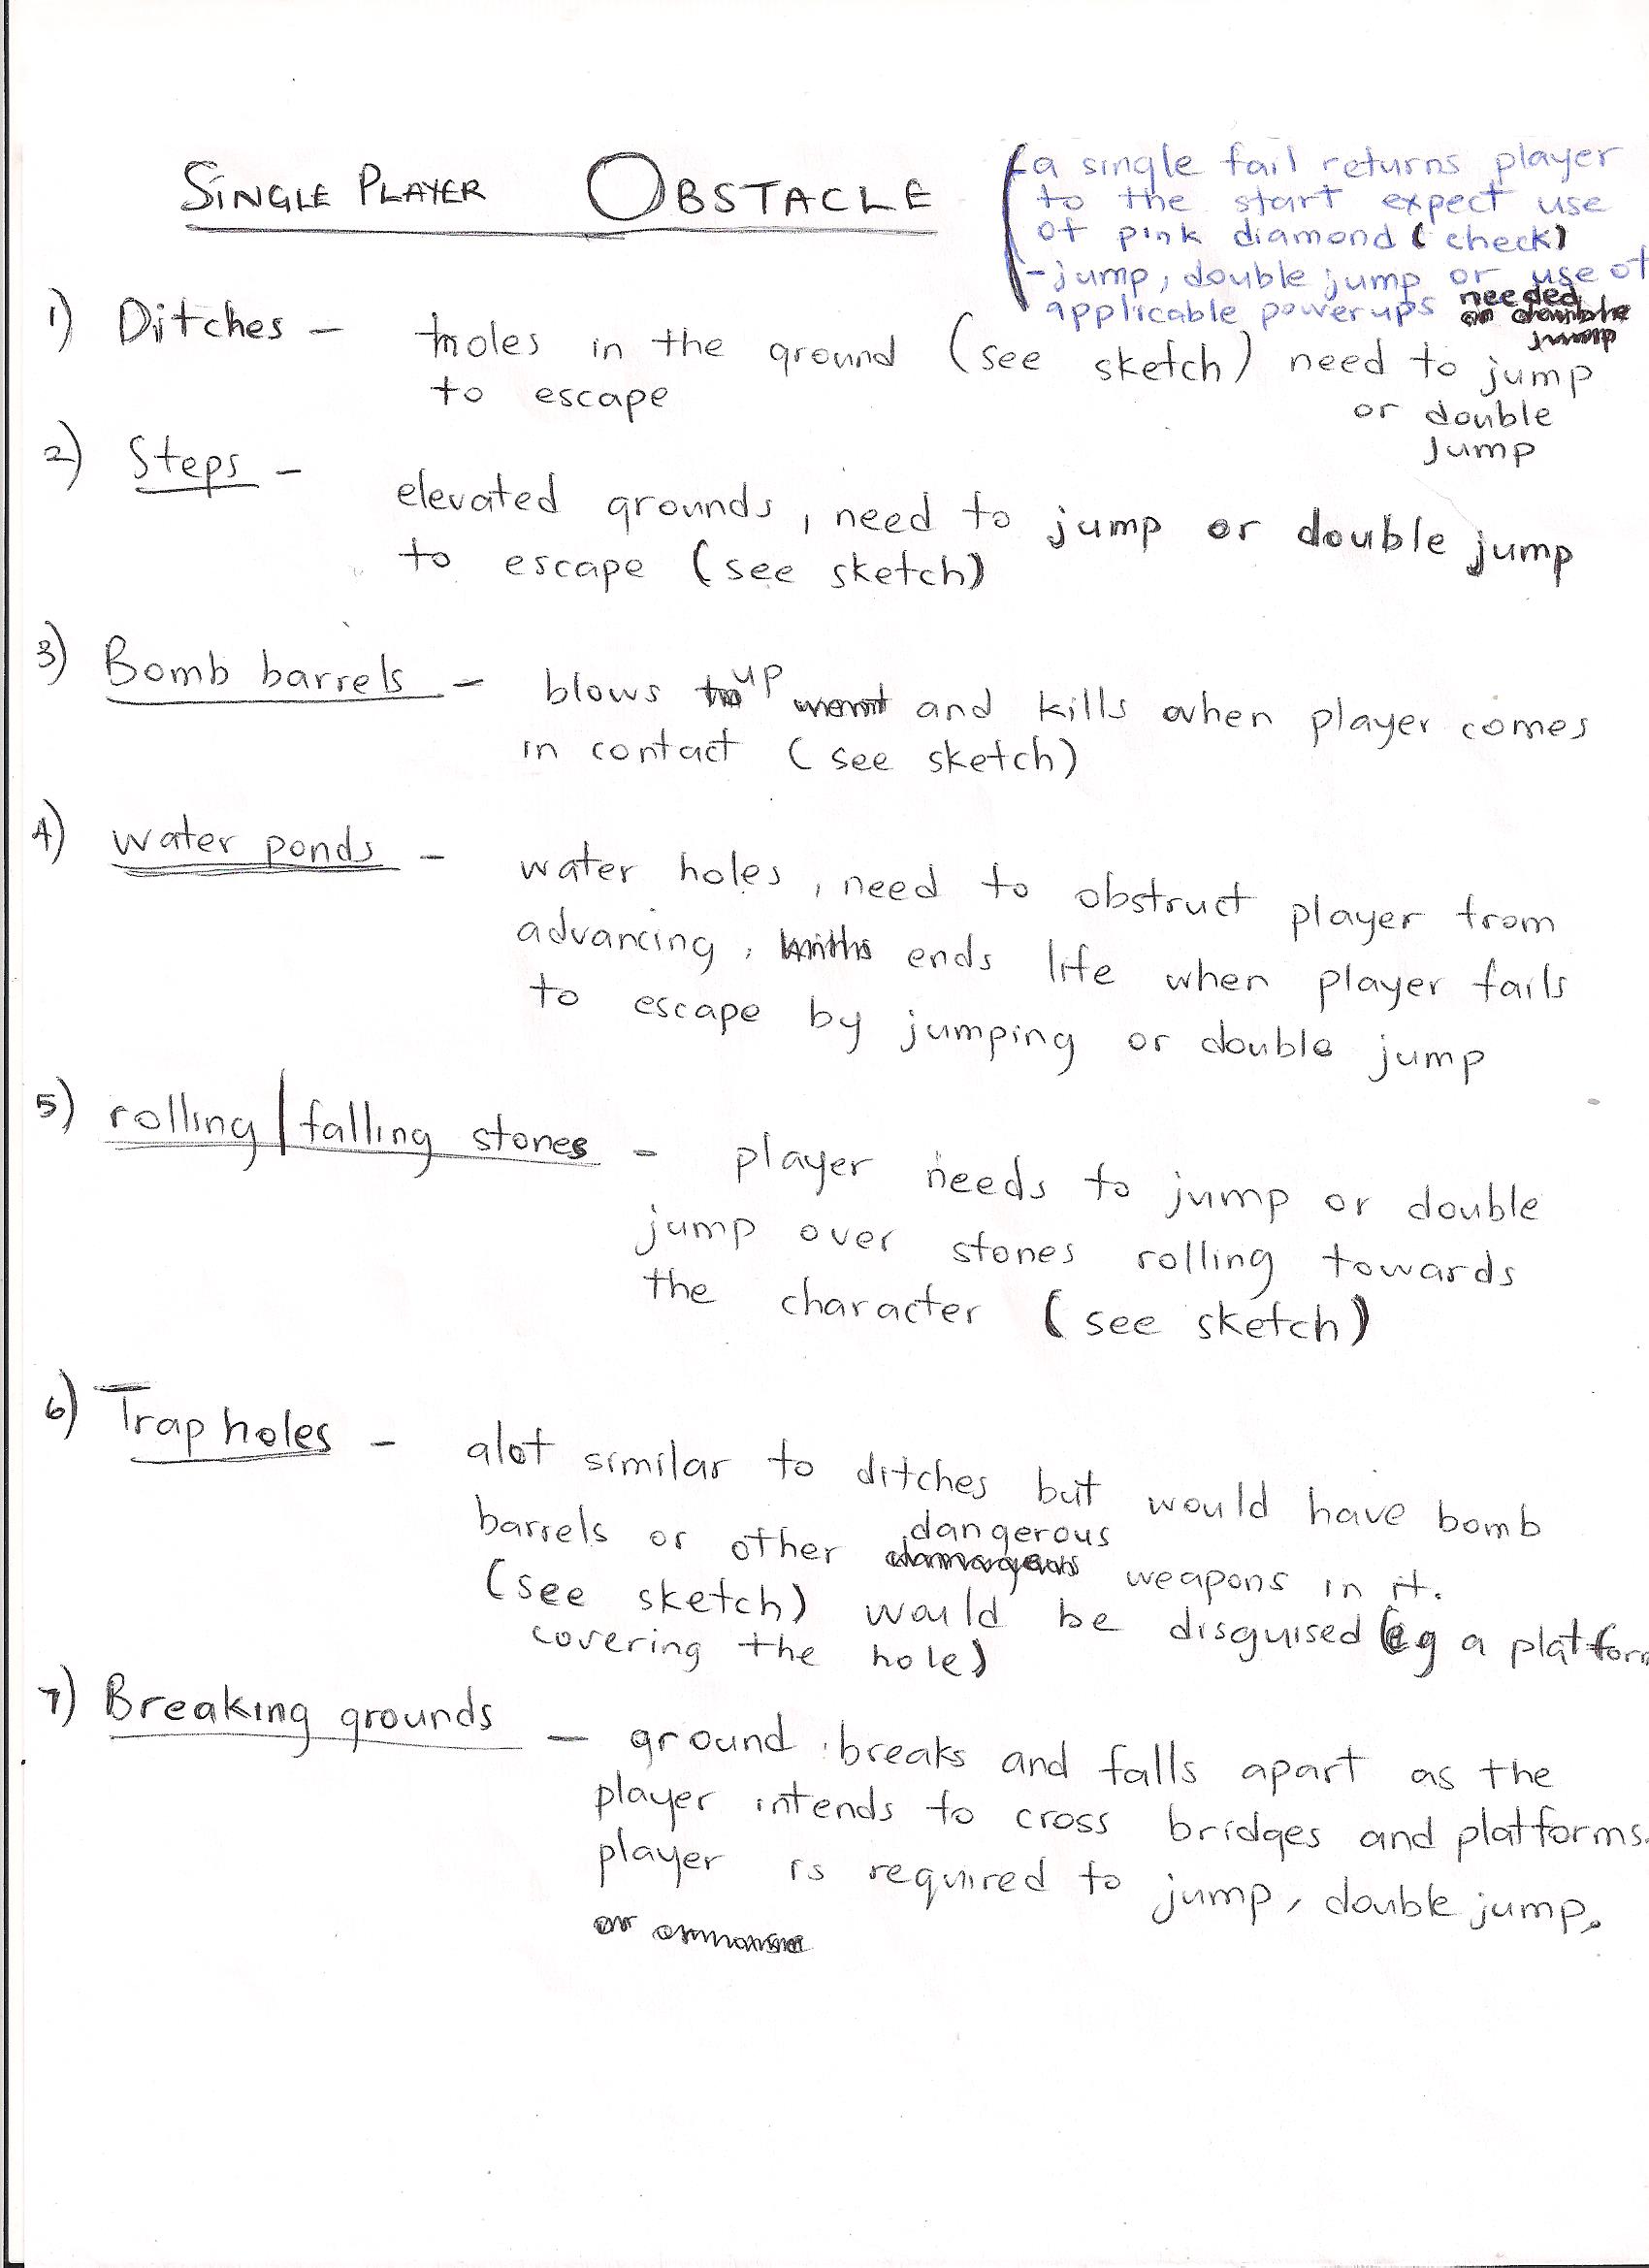 SINGLE PLAYER OBSTACLE
-a single fail returns player
to the start expect use
of pink diamond (check)
-jump, double jump or use of
applicable powerups needed
1) Ditches - holes in the ground (see sketch) need to jump
or double
jump
to escape
2) Steps -
elevated grounds, need to jump or double jump
to escape (see sketch)
3) Bomb barrels - blows up and kills when player comes
in contact (see sketch)
4) water ponds - water holes, need to obstruct player from
advancing, ends life when player fails
to escape by jumping or double jump
5) rolling/falling stones - player needs to jump or double
jump over stones rolling towards
the character (see sketch)
6) Trap holes - alot similar to ditches but would have bomb
barrels or other dangerous weapons in it.
(see sketch) would be disguised (eg a platform
covering the hole)
7) Breaking grounds - ground breaks and falls apart as the
player intends to cross bridges and platforms.
player is required to jump, double jump.